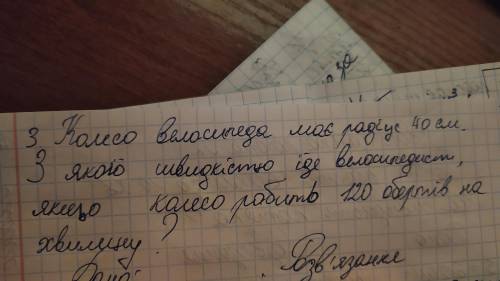 3 Колесо велосипеда має радіус 40 см.
З якою швидкістю їде велосипедист,
якщо колесо робить 120 обертів на
хвилину?
Розв'язання